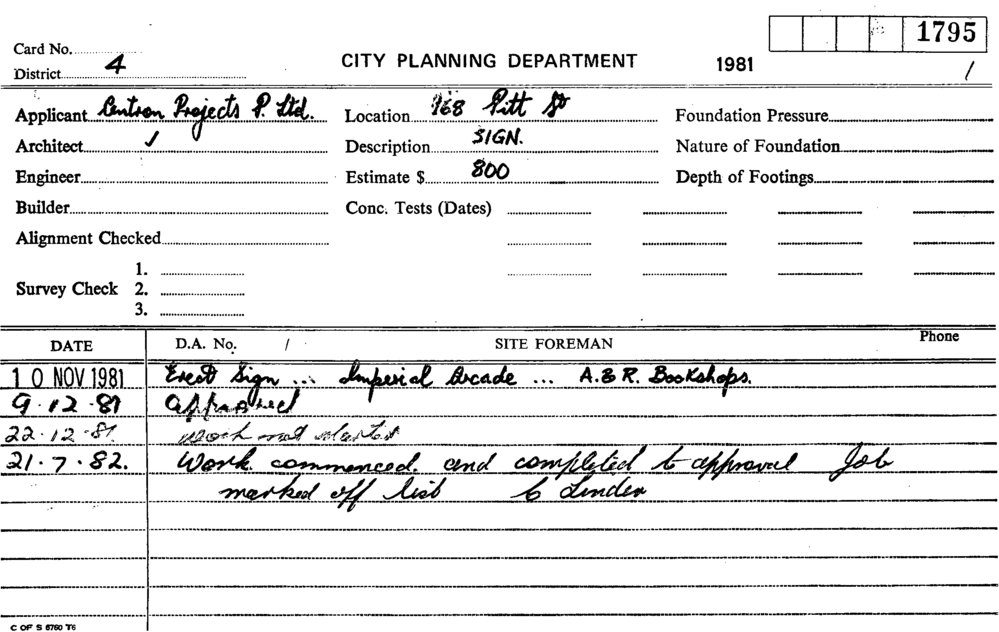 1795
Card No.
District 4
CITY PLANNING DEPARTMENT
1981
/
Applicant Centron Projects P. Ltd.
Location 168 Pitt St
Foundation Pressure
Architect ✓
Description SIGN.
Nature of Foundation
Engineer
Estimate $ 800
Depth of Footings
Builder
Conc. Tests (Dates)
Alignment Checked
1.
Survey Check 2.
3.
DATE D.A. No. / SITE FOREMAN Phone
10 NOV 1981 Erect Sign ... Imperial Arcade ... A.&R. Bookshops.
9.12.81 Approved
22.12.81. Work not started
21.7.82. Work commenced and completed to approval Job
marked off list Linden
C OF S 6760 T6